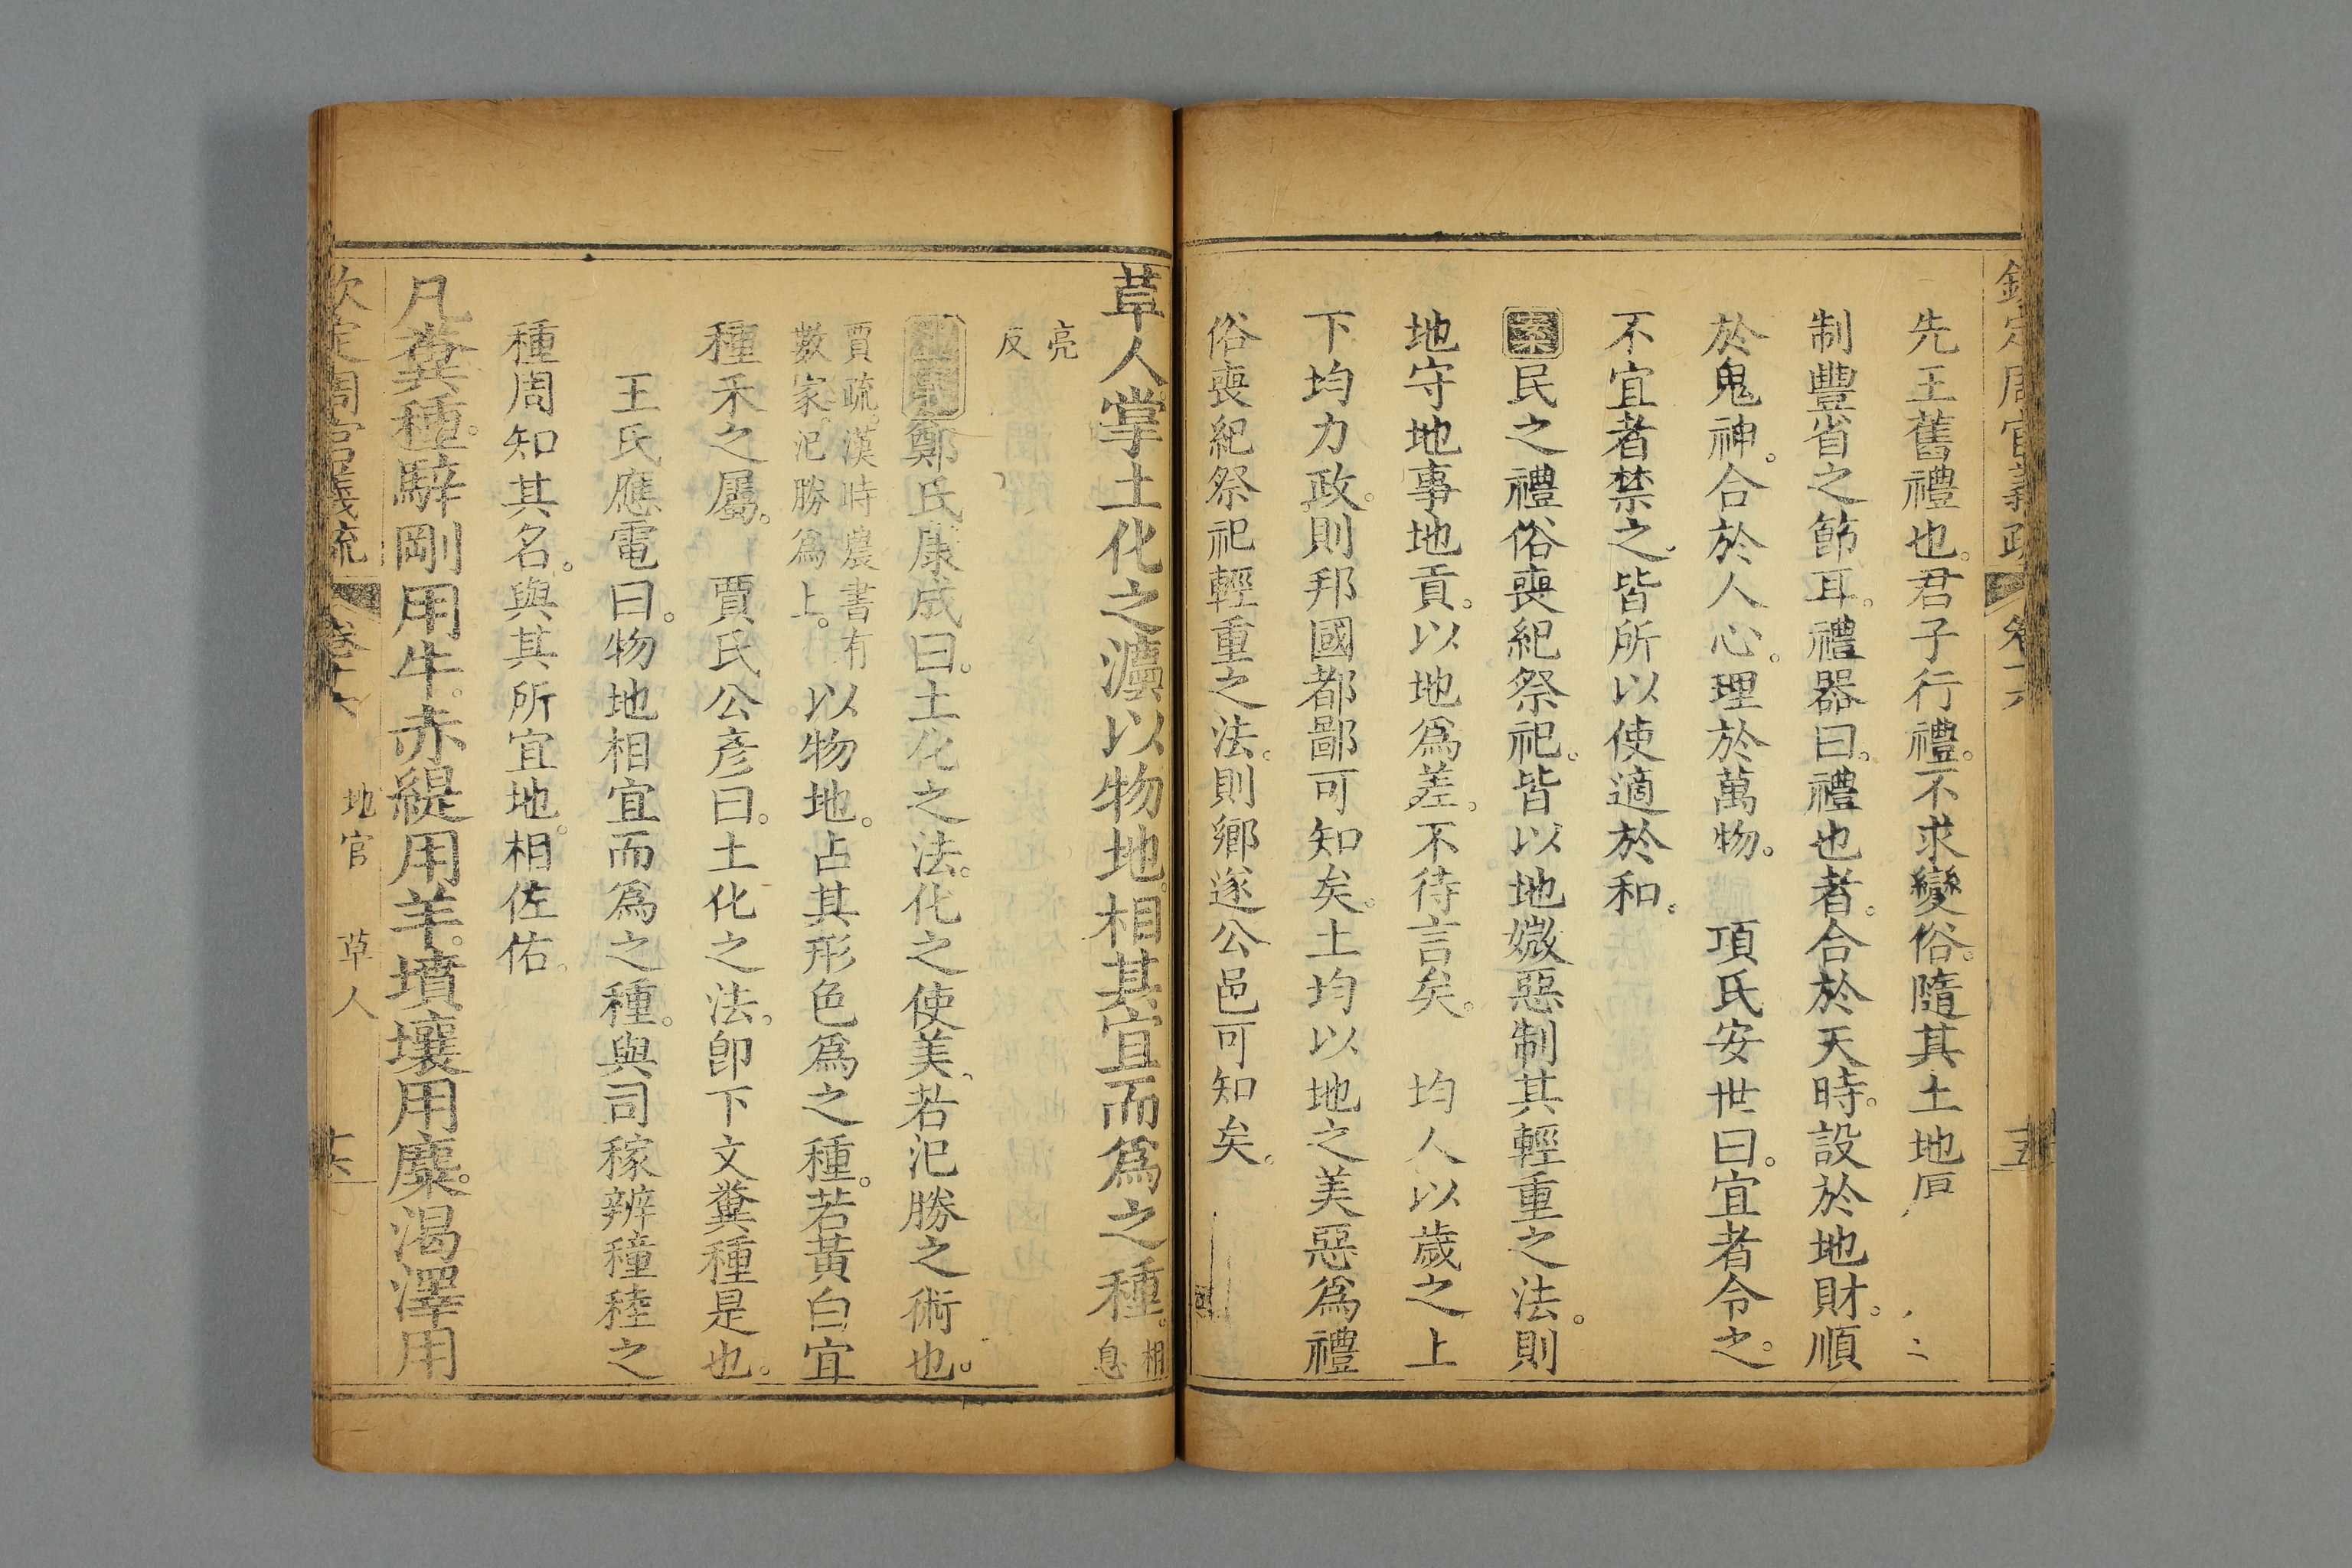 欽定周官義疏 卷十六 五
先王舊禮也。君子行禮。不求變俗。隨其土地
制豐省之節耳。禮器曰。禮也者。合於天時。設於地財。順
於鬼神。合於人心。理於萬物。 項氏安世曰。宜者令之。
不宜者禁之。皆所以使適於和。
案民之禮俗喪紀祭祀。皆以地媺惡制其輕重之法。則
地守地事地貢。以地爲差。不待言矣。 均人以歲之上
下均力政。則邦國都鄙可知矣。土均以地之美惡爲禮
俗喪紀祭祀輕重之法。則鄉遂公邑可知矣。
草人掌土化之灋以物地。相其宜而爲之種。相息
亮反
鄭氏康成曰。土化之法。化之使美。若氾勝之術也。
賈疏。漢時農書有數家。氾勝爲上。以物地。占其形色爲之種。若黃白宜
種禾之屬。 賈氏公彥曰。土化之法。卽下文糞種是也。
王氏應電曰。物地相宜而爲之種。與司稼辨穜稑之
種周知其名。與其所宜地。相佐佑。
凡糞種。騂剛用牛。赤緹用羊。墳壤用麋。渴澤用
欽定周官義疏 卷十六 地官 草人